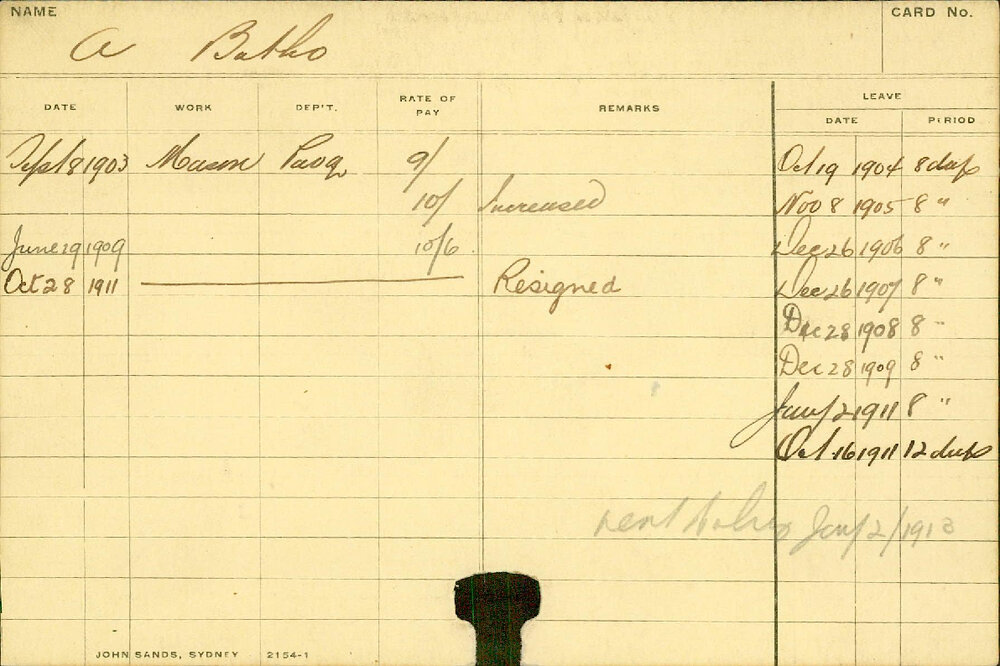 NAME CARD No.
A Batho
DATE WORK DEP'T. RATE OF PAY REMARKS LEAVE
DATE PERIOD
Sept 8 1903 Mason 9/ Oct 19 1904 8 days
10/ Increased Nov 8 1905 8 "
June 29 1909 10/6 Dec 26 1906 8 "
Oct 28 1911 Resigned Dec 26 1907 8 "
Dec 28 1908 8 "
Dec 28 1909 8 "
Jany 2 1911 8 "
Oct 16 1911 12 days
Jany 2/1913
JOHN SANDS, SYDNEY 2154-1